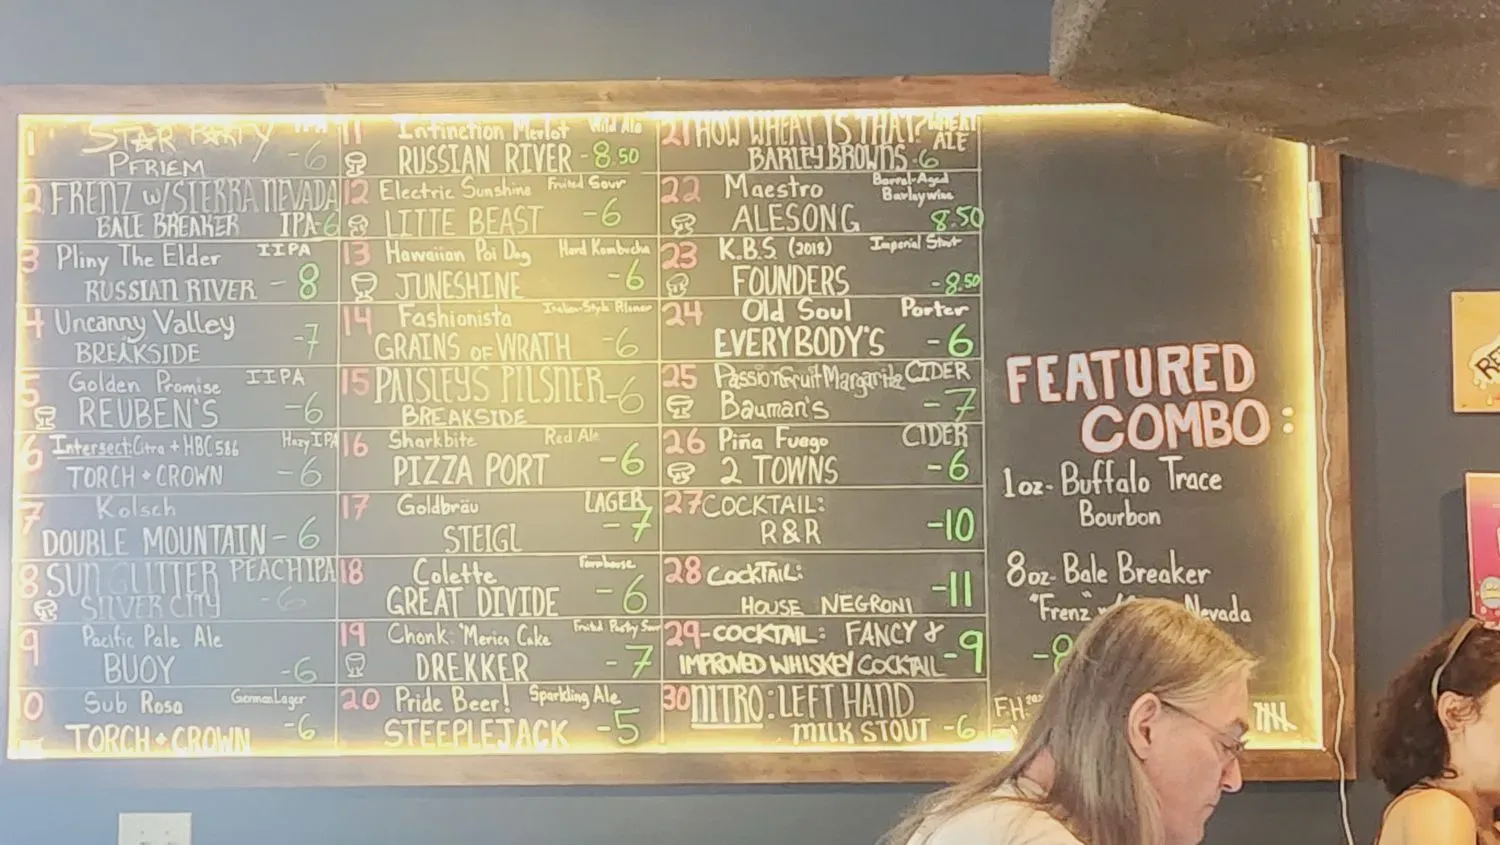 1 STAR PARTY IPA
PFRIEM -6
2 FRENZ w/SIERRA NEVADA
BALE BREAKER IPA-6
3 Pliny The Elder IIPA
RUSSIAN RIVER - 8
4 Uncanny Valley
BREAKSIDE -7
5 Golden Promise IIPA
REUBEN'S -6
6 Intersect: Citra + HBC 586 Hazy IPA
TORCH + CROWN -6
7 Kolsch
DOUBLE MOUNTAIN - 6
8 SUN GLITTER PEACH IPA
SILVER CITY -6
9 Pacific Pale Ale
BUOY -6
0 Sub Rosa German Lager
TORCH + CROWN -6
11 Intinction Merlot Wild Ale
RUSSIAN RIVER -8.50
12 Electric Sunshine Fruited Sour
LITTE BEAST -6
13 Hawaiian Poi Dog Hard Kombucha
JUNESHINE -6
14 Fashionista Italian-Style Pilsner
GRAINS OF WRATH -6
15 PAISLEYS PILSNER -6
BREAKSIDE
16 Sharkbite Red Ale
PIZZA PORT -6
17 Goldbräu LAGER
STEIGL -7
18 Colette Farmhouse
GREAT DIVIDE -6
19 Chonk 'Merica Cake Fruited Pastry Sour
DREKKER -7
20 Pride Beer! Sparkling Ale
STEEPLEJACK -5
21 HOW WHEAT IS THAT? WHEAT ALE
BARLEY BROWNS -6
22 Maestro Barrel-Aged Barleywine
ALESONG 8.50
23 K.B.S (2018) Imperial Stout
FOUNDERS -8.50
24 Old Soul Porter
EVERYBODY'S -6
25 Passionfruit Margarita CIDER
Bauman's -7
26 Piña Fuego CIDER
2 TOWNS -6
27 COCKTAIL:
R&R -10
28 COCKTAIL:
HOUSE NEGRONI -11
29-COCKTAIL: FANCY &
IMPROVED WHISKEY COCKTAIL -9
30 NITRO: LEFT HAND
MILK STOUT -6
FEATURED
COMBO:
1oz- Buffalo Trace
Bourbon
8oz- Bale Breaker
"Frenz" Nevada
-8
F.H.